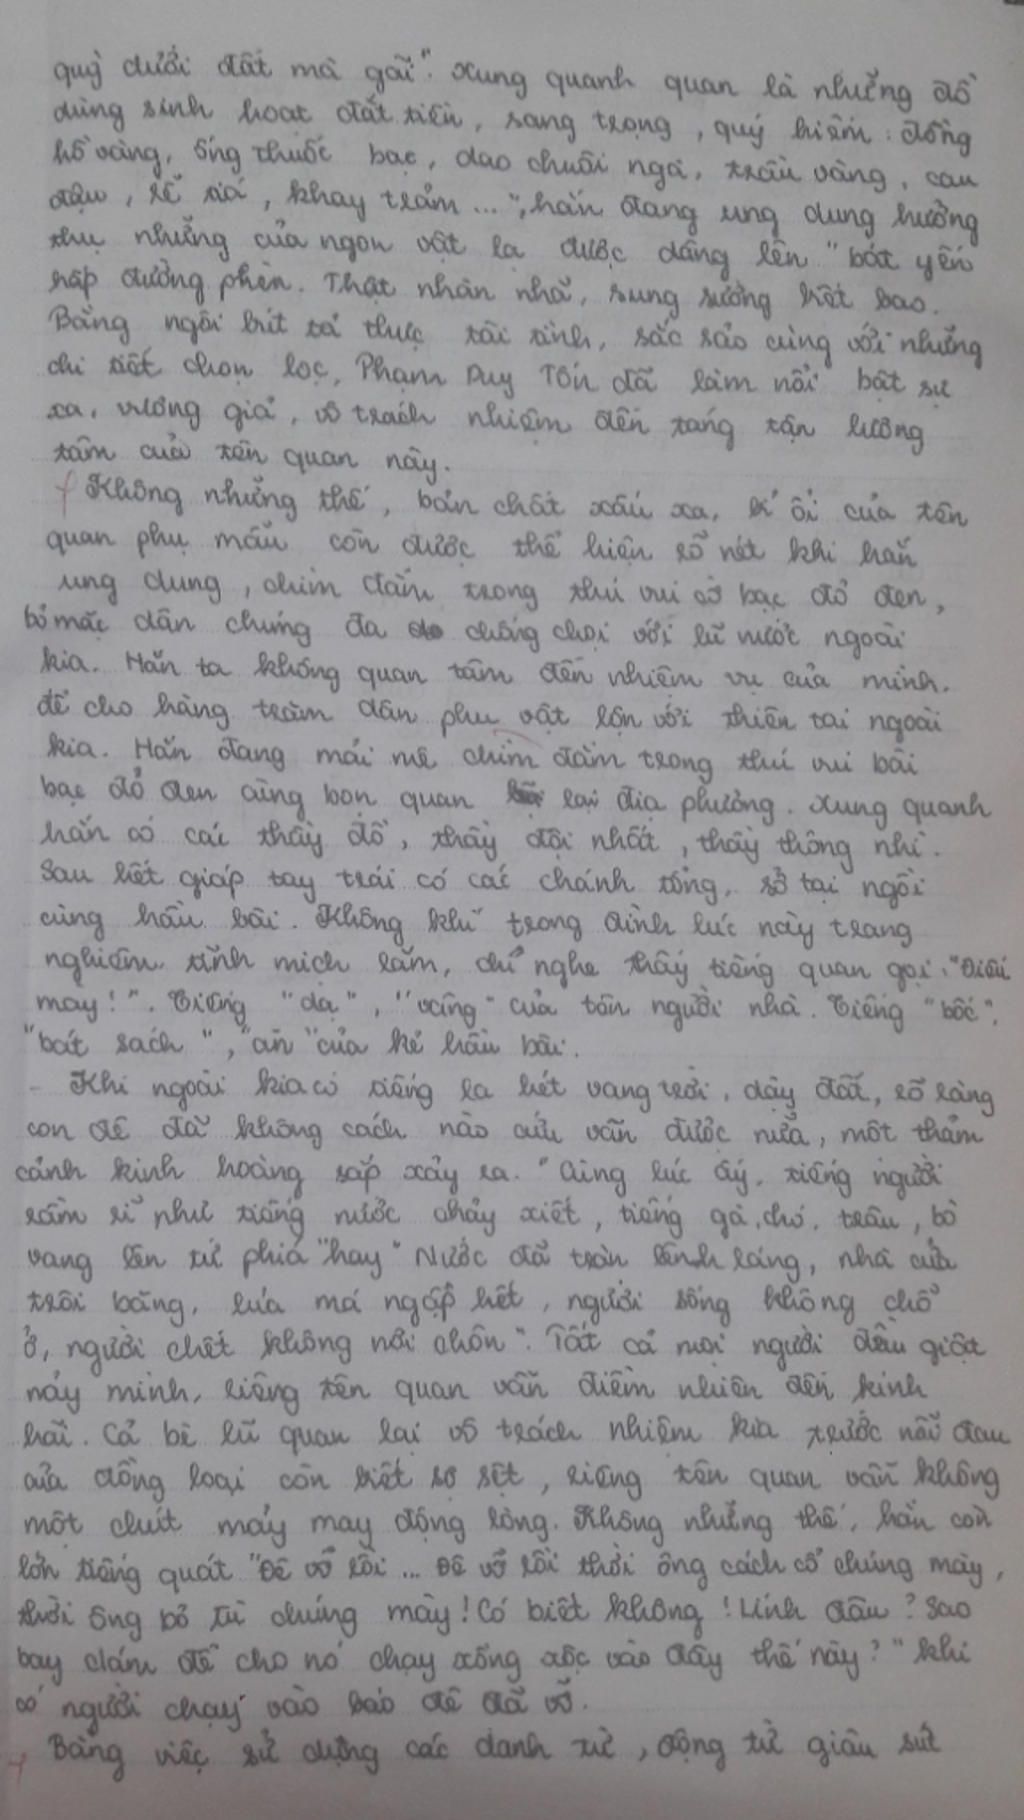 quỳ dưới đất mà gãi". Xung quanh quan là những đồ
dùng sinh hoạt đắt tiền, sang trọng, quý hiếm: đồng
hồ vàng, ống thuốc bạc, dao chuôi ngà, trầu vàng, cau
đậu, rễ tía, khay trám ...", hắn đang ung dung hưởng
thụ những của ngon vật lạ được dâng lên "bát yến
hấp đường phèn. Thật nhàn nhã, sung sướng biết bao.
Bằng ngòi bút tả thực tài tình, sắc sảo cùng với những
chi tiết chọn lọc, Phạm Duy Tốn đã làm nổi bật sự
xa, vương giả, vô trách nhiệm đến táng tận lương
tâm của tên quan này.
Không những thế, bản chất xấu xa, bỉ ổi của tên
quan phụ mẫu còn được thể hiện rõ nét khi hắn
ung dung, chìm đắm trong thú vui cờ bạc đỏ đen,
bỏ mặc dân chúng đa chống chọi với lũ nước ngoài
kia. Hắn ta không quan tâm đến nhiệm vụ của mình.
để cho hàng trăm dân phu vật lộn với thiên tai ngoài
kia. Hắn đang mải mê chìm đắm trong thú vui bài
bạc đỏ đen cùng bọn quan lại địa phương. Xung quanh
hắn có các thầy đồ, thầy đội nhất, thầy thông nhì.
Sau hết giáp tay trái có các chánh tổng, sở tại ngồi
cùng hầu bài. Không khí trong đình lúc này trang
nghiêm tĩnh mịch lắm, chỉ nghe thấy tiếng quan gọi: "Điếu
mày!". Tiếng "dạ", "vâng" của tên người nhà. Tiếng "bốc",
"bát sách", "ăn" của kẻ hầu bài.
- Khi ngoài kia có tiếng la hét vang trời, dậy đất, rõ ràng
con đê đã không cách nào cứu vãn được nữa, một thảm
cảnh kinh hoàng sắp xảy ra. "Cùng lúc ấy, tiếng người
rầm rĩ như tiếng nước chảy xiết, tiếng gà, chó, trâu, bò
vang lên tứ phía" hay "Nước đã tràn lênh láng, nhà cửa
trôi băng, lúa má ngập hết, người sống không chỗ
ở, người chết không nơi chôn". Tất cả mọi người đều giật
nảy mình, riêng tên quan vẫn điềm nhiên đến kinh
hãi. Cả bè lũ quan lại vô trách nhiệm kia trước nỗi đau
của đồng loại còn biết sợ sệt, riêng tên quan vẫn không
một chút mảy may động lòng. Không những thế, hắn còn
lớn tiếng quát "Đê vỡ rồi ... Đê vỡ rồi thời ông cách cổ chúng mày,
thời ông bỏ tù chúng mày! Có biết không! Lính đâu? Sao
bay dám để cho nó chạy xồng xộc vào đây thế này?" khi
có người chạy vào báo đê đã vỡ.
Bằng việc sử dụng các danh từ, động từ giàu sức